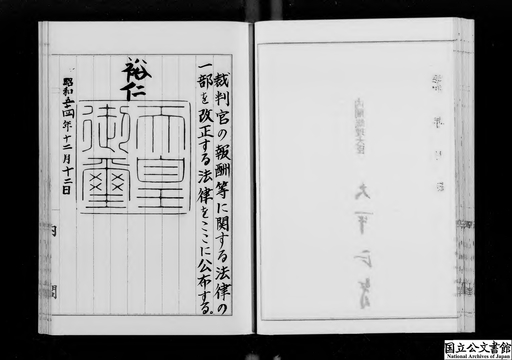 裁判官の報酬等に関する法律の
一部を改正する法律をここに公布する。
裕仁
天皇
御璽
昭和五十四年十二月十二日
内閣
国立公文書館
National Archives of Japan